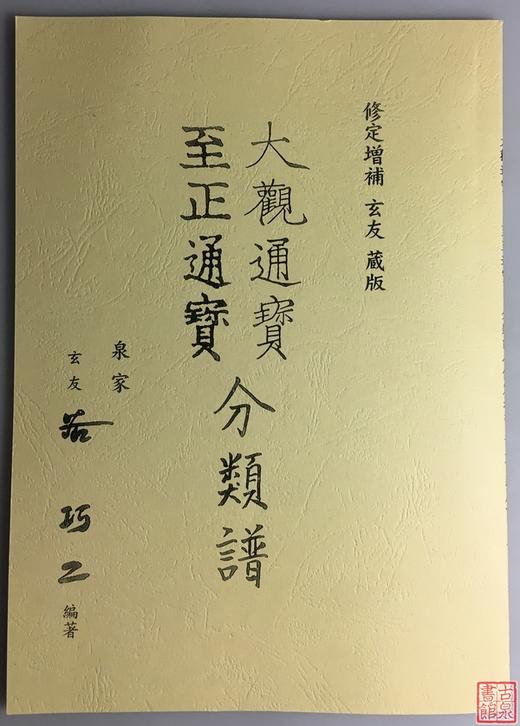 修定増補 玄友 蔵版
大觀通寶
至正通寶
分類譜
泉家
玄友 谷 巧二 編著
古泉
書館